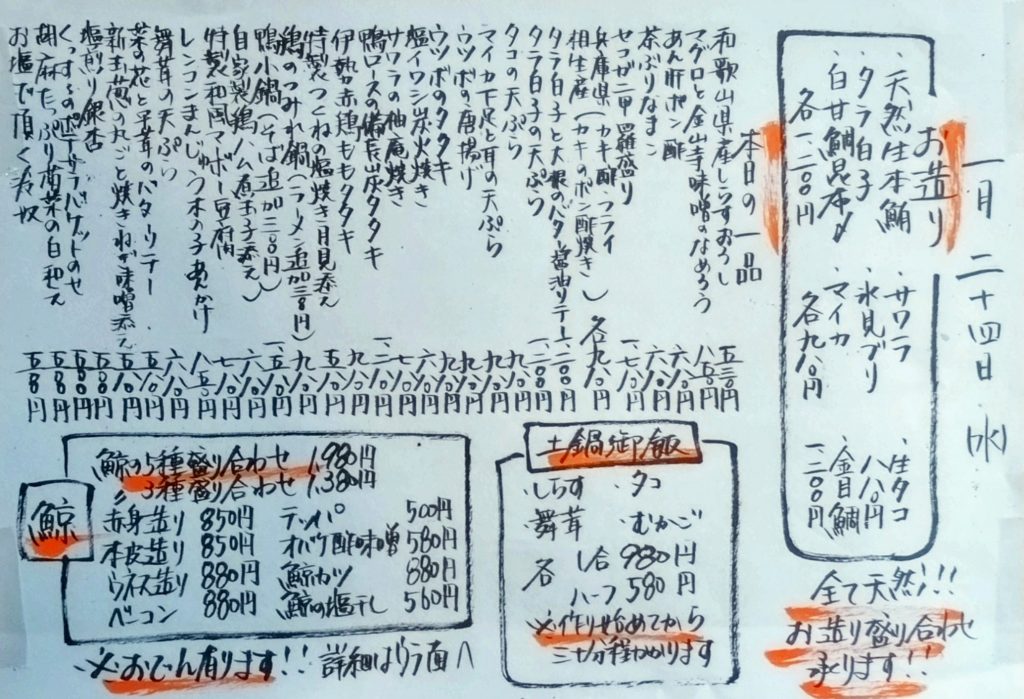 一月二十四日(水)
お造り
・天然生本鮪
・タラ白子
・白甘鯛昆布〆
各一、二〇〇円
・サワラ
・氷見ブリ
・マイカ
各九八〇円
・生タコ
八八〇円
・金目鯛
一、三〇〇円
全て天然!!!
お造り盛り合わせ
承ります!!
本日の一品
和歌山県産しらすおろし 五三〇円
マグロと金山寺味噌のなめろう 八五〇円
あん肝ポン酢
茶ぶりなまこ
セコガニ甲羅盛り
兵庫県(カキ酢 フライ
相生産(カキのポン酢焼き) 各九八〇円
タラ白子と大根のバター醤油ソテー 一、二〇〇円
タラ白子の天ぷら 一、二〇〇円
タコの天ぷら
マイカ下足と耳の天ぷら
ウツボの唐揚げ
ウツボのタタキ
塩イワシ炭火焼き
サワラの柚庵焼き
鴨ロースの備長炭タタキ
伊勢赤鶏ももタタキ
特製つくねの塩焼き月見添え
鶏のつみれ鍋(ラーメン追加三八〇円)
鴨小鍋(そば追加三〇〇円)
自家製鶏ハム煮玉子添え
特製和風マーボー豆腐
レンコンまんじゅう木の子あんかけ
舞茸の天ぷら
菜の花と平茸のバターソテー
新玉葱の丸ごと焼きねぎ味噌添え
塩煎り銀杏
胡麻たっぷり菊菜の白和え
お塩で頂く冷奴
土鍋御飯
・しらす ・タコ
・舞茸 ・むかご
各 1合 980円
ハーフ 580円
※作り始めてから
三十分程かかります
鯨
鯨の5種盛り合わせ 1,980円
〃 3種盛り合わせ 1,380円
赤身造り 850円
本皮造り 850円
ウネス造り 880円
ベーコン 880円
テッパ 500円
オバケ酢味噌 580円
鯨カツ 880円
鯨の塩干し 560円
・※おでん有ります!! 詳細はウラ面へ